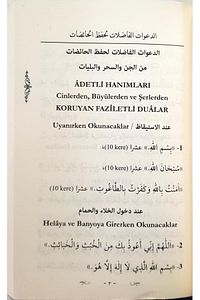 الدعوات الفاضلات لحفظ الحائضات
الدعوات الفاضلات لحفظ الحائضات
من الجن والسحر والبليات
ÂDETLİ HANIMLARI
Cinlerden, Büyülerden ve Şerlerden
KORUYAN FAZİLETLİ DUÂLAR
Uyanırken Okunacaklar / عند الاستيقاظ
1- «بِسْمِ اللّٰهِ.» عشرا (10 kere)،
«سُبْحَانَ اللّٰهِ.» عشرا (10 kere)،
«اٰمَنْتُ بِاللّٰهِ وَكَفَرْتُ بِالطَّاغُوتِ.» عشرا (10 kere)
عند دخول الخلاء والحمام
Helâya ve Banyoya Girerken Okunacaklar
2- «اَللّٰهُمَّ إِنِّي أَعُوذُ بِكَ مِنَ الْخُبُثِ وَالْخَبَائِثِ.»
3- «بِسْمِ اللّٰهِ الَّذِي لَا إِلٰهَ إِلَّا هُوَ.»